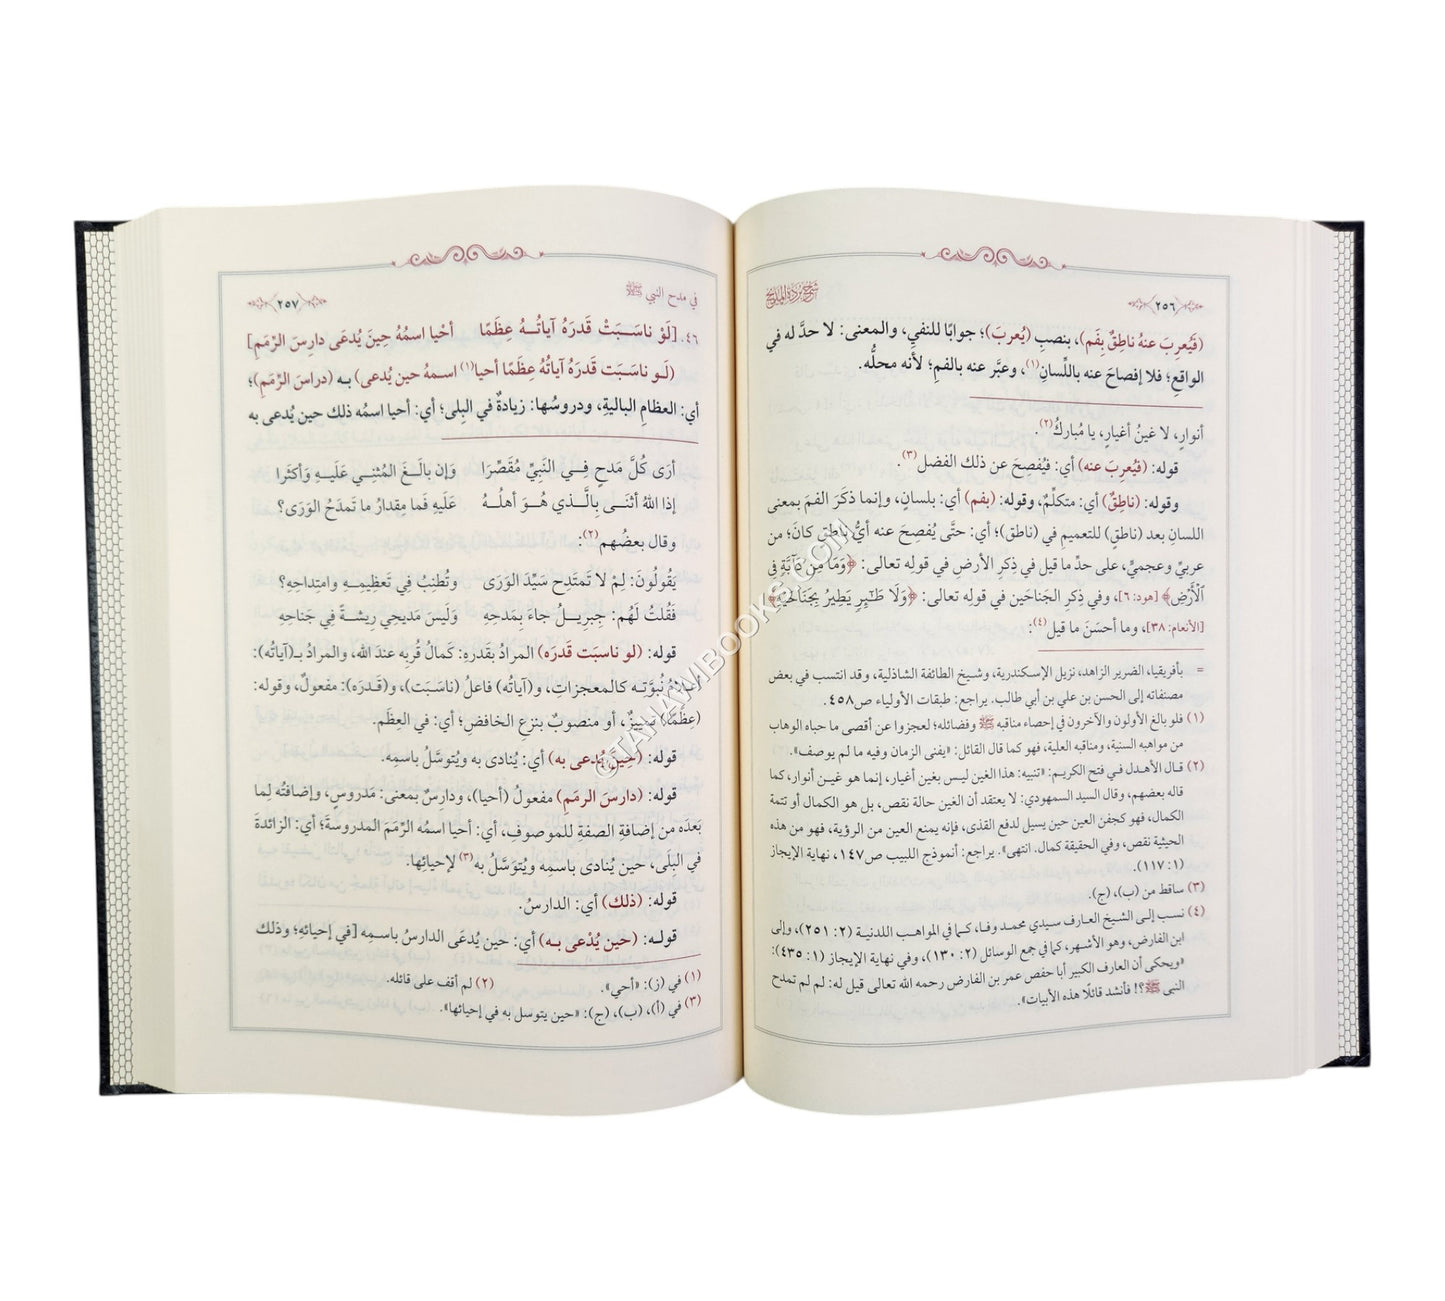 ﴿٢٥٦﴾
شرح بردة المديح
(فَيُعرِبَ عنهُ ناطِقٌ بِفَمِ)، بنصبِ (يُعربَ)؛ جوابًا للنفيِ، والمعنى: لا حدَّ له في
الواقعِ؛ فلا إفصاحَ عنه باللِّسانِ(١)، وعبَّر عنه بالفمِ؛ لأنه محلُّه.
أنوارٍ، لا غينُ أغيارٍ، يا مُباركُ(٢).
قوله: (فيُعرِبَ عنه) أي: فيُفصِحَ عن ذلك الفضل(٣).
وقوله: (ناطِقٌ) أي: متكلِّمٌ، وقوله: (بفم) أي: بلسانٍ، وإنما ذكَرَ الفمَ بمعنى
اللسان بعد (ناطقٍ) للتعميمِ في (ناطق)؛ أي: حتَّى يُفصِحَ عنه أيُّ ناطقٍ كانَ؛ من
عربيٍّ وعجميٍّ، على حدِّ ما قيل في ذِكرِ الأرضِ في قولِه تعالى: ﴿وَمَا مِن دَآبَّةٍ فِي
ٱلْأَرْضِ﴾ [هود: ٦]، وفي ذِكرِ الجَناحَين في قولِه تعالى: ﴿وَلَا طَٰٓئِرٍ يَطِيرُ بِجَنَاحَيْهِ﴾
[الأنعام: ٣٨]، وما أحسَنَ ما قيل(٤):
= بأفريقيا، الضرير الزاهد، نزيل الإسكندرية، وشيخ الطائفة الشاذلية، وقد انتسب في بعض
مصنفاته إلى الحسن بن علي بن أبي طالب. يراجع: طبقات الأولياء ص٤٥٨.
(١) فلو بالغ الأولون والآخرون في إحصاء مناقبه ﷺ وفضائله؛ لعجزوا عن أقصى ما حباه الوهاب
من مواهبه السنية، ومناقبه العلية، فهو كما قال القائل: «يفنى الزمان وفيه ما لم يوصف».
(٢) قال الأهدل في فتح الكريم: «تنبيه: هذا الغين ليس بغين أغيار، إنما هو غين أنوار، كما
قاله بعضهم، وقال السيد السمهودي: لا يعتقد أن الغين حالة نقص، بل هو الكمال أو تتمة
الكمال، فهو كجفن العين حين يسيل لدفع القذى، فإنه يمنع العين من الرؤية، فهو من هذه
الحيثية نقص، وفي الحقيقة كمال. انتهى». يراجع: أنموذج اللبيب ص١٤٧، نهاية الإيجاز
(١: ١١٧).
(٣) ساقط من (ب)، (ج).
(٤) نسب إلى الشيخ العارف سيدي محمد وفا، كما في المواهب اللدنية (٢: ٢٥١)، وإلى
ابن الفارض، وهو الأشهر، كما في جمع الوسائل (٢: ١٣٠)، وفي نهاية الإيجاز (١: ٤٣٥):
«ويحكى أن العارف الكبير أبا حفص عمر بن الفارض رحمه الله تعالى قيل له: لم لم تمدح
النبي ﷺ؟! فأنشد قائلًا هذه الأبيات».
في مدح النبي ﷺ
﴿٢٥٧﴾
٤٦. [لَوْ ناسَبَتْ قَدرَهُ آياتُهُ عِظَمًا أحْيا اسمُهُ حِينَ يُدعَى دارِسَ الرِّمَمِ]
(لَو ناسَبَت قَدرَهُ آياتُهُ عِظَمًا أحيا(١) اسمه حين يُدعى) به (دراسَ الرِّمَمِ)؛
أي: العظامِ الباليةِ، ودروسُها: زيادةٌ في البِلى؛ أي: أحيا اسمُه ذلك حين يُدعى به
أرَى كُلَّ مَدحٍ فِي النَّبِيِّ مُقَصِّرَا وَإن بالَغَ المُثنِي عَلَيهِ وَأكثَرا
إذا اللهُ أثنَى بِالَّذي هُوَ أهلُهُ عَلَيهِ فَما مِقدارُ ما تَمدَحُ الوَرَى؟
وقال بعضُهم(٢):
يَقُولُونَ: لِمْ لا تَمتَدِح سَيِّدَ الوَرَى وتُطنِبُ في تَعظِيمِهِ وامتِداحِهِ؟
فَقُلتُ لَهُم: جِبرِيلُ جاءَ بِمَدحِهِ وَلَيسَ مَديحِي رِيشةً في جَناحِهِ
قوله: (لو ناسبَت قدرَه) المرادُ بقَدرِه: كمالُ قُربِه عندَ الله، والمرادُ بـ(آياتُه):
نُبوَّتِه كالمعجزاتِ، و(آياتُه) فاعلُ (ناسَبَت)، و(قَدرَه): مفعولٌ، وقوله:
(عِظَمًا) تمييزٌ، أو منصوبٌ بنزعِ الخافضِ؛ أي: في العِظَم.
قوله: (حِين يُدعى به) أي: يُنادى به ويُتوسَّلُ باسمِه.
قوله: (دارسَ الرمَمِ) مفعولُ (أحيا)، ودارِسٌ بمعنى: مَدروسٍ، وإضافتُه لِما
بَعدَه من إضافةِ الصفةِ للموصوفِ، أي: أحيا اسمُه الرِّمَمَ المدروسةَ؛ أي: الزائدةَ
في البِلَى، حين يُنادى باسمِه ويُتوَسَّلُ به(٣) لإحيائِها.
قوله: (ذلك) أي: الدارسُ.
قوله: (حين يُدْعى به) أي: حين يُدعَى الدارسُ باسمِه [في إحيائِهِ؛ وذلك
(١) في (ز): «أحي». (٢) لم أقف على قائله.
(٣) في (أ)، (ب)، (ج): «حين يتوسل به في إحيائها».
©TAHAWIBOOKS.COM